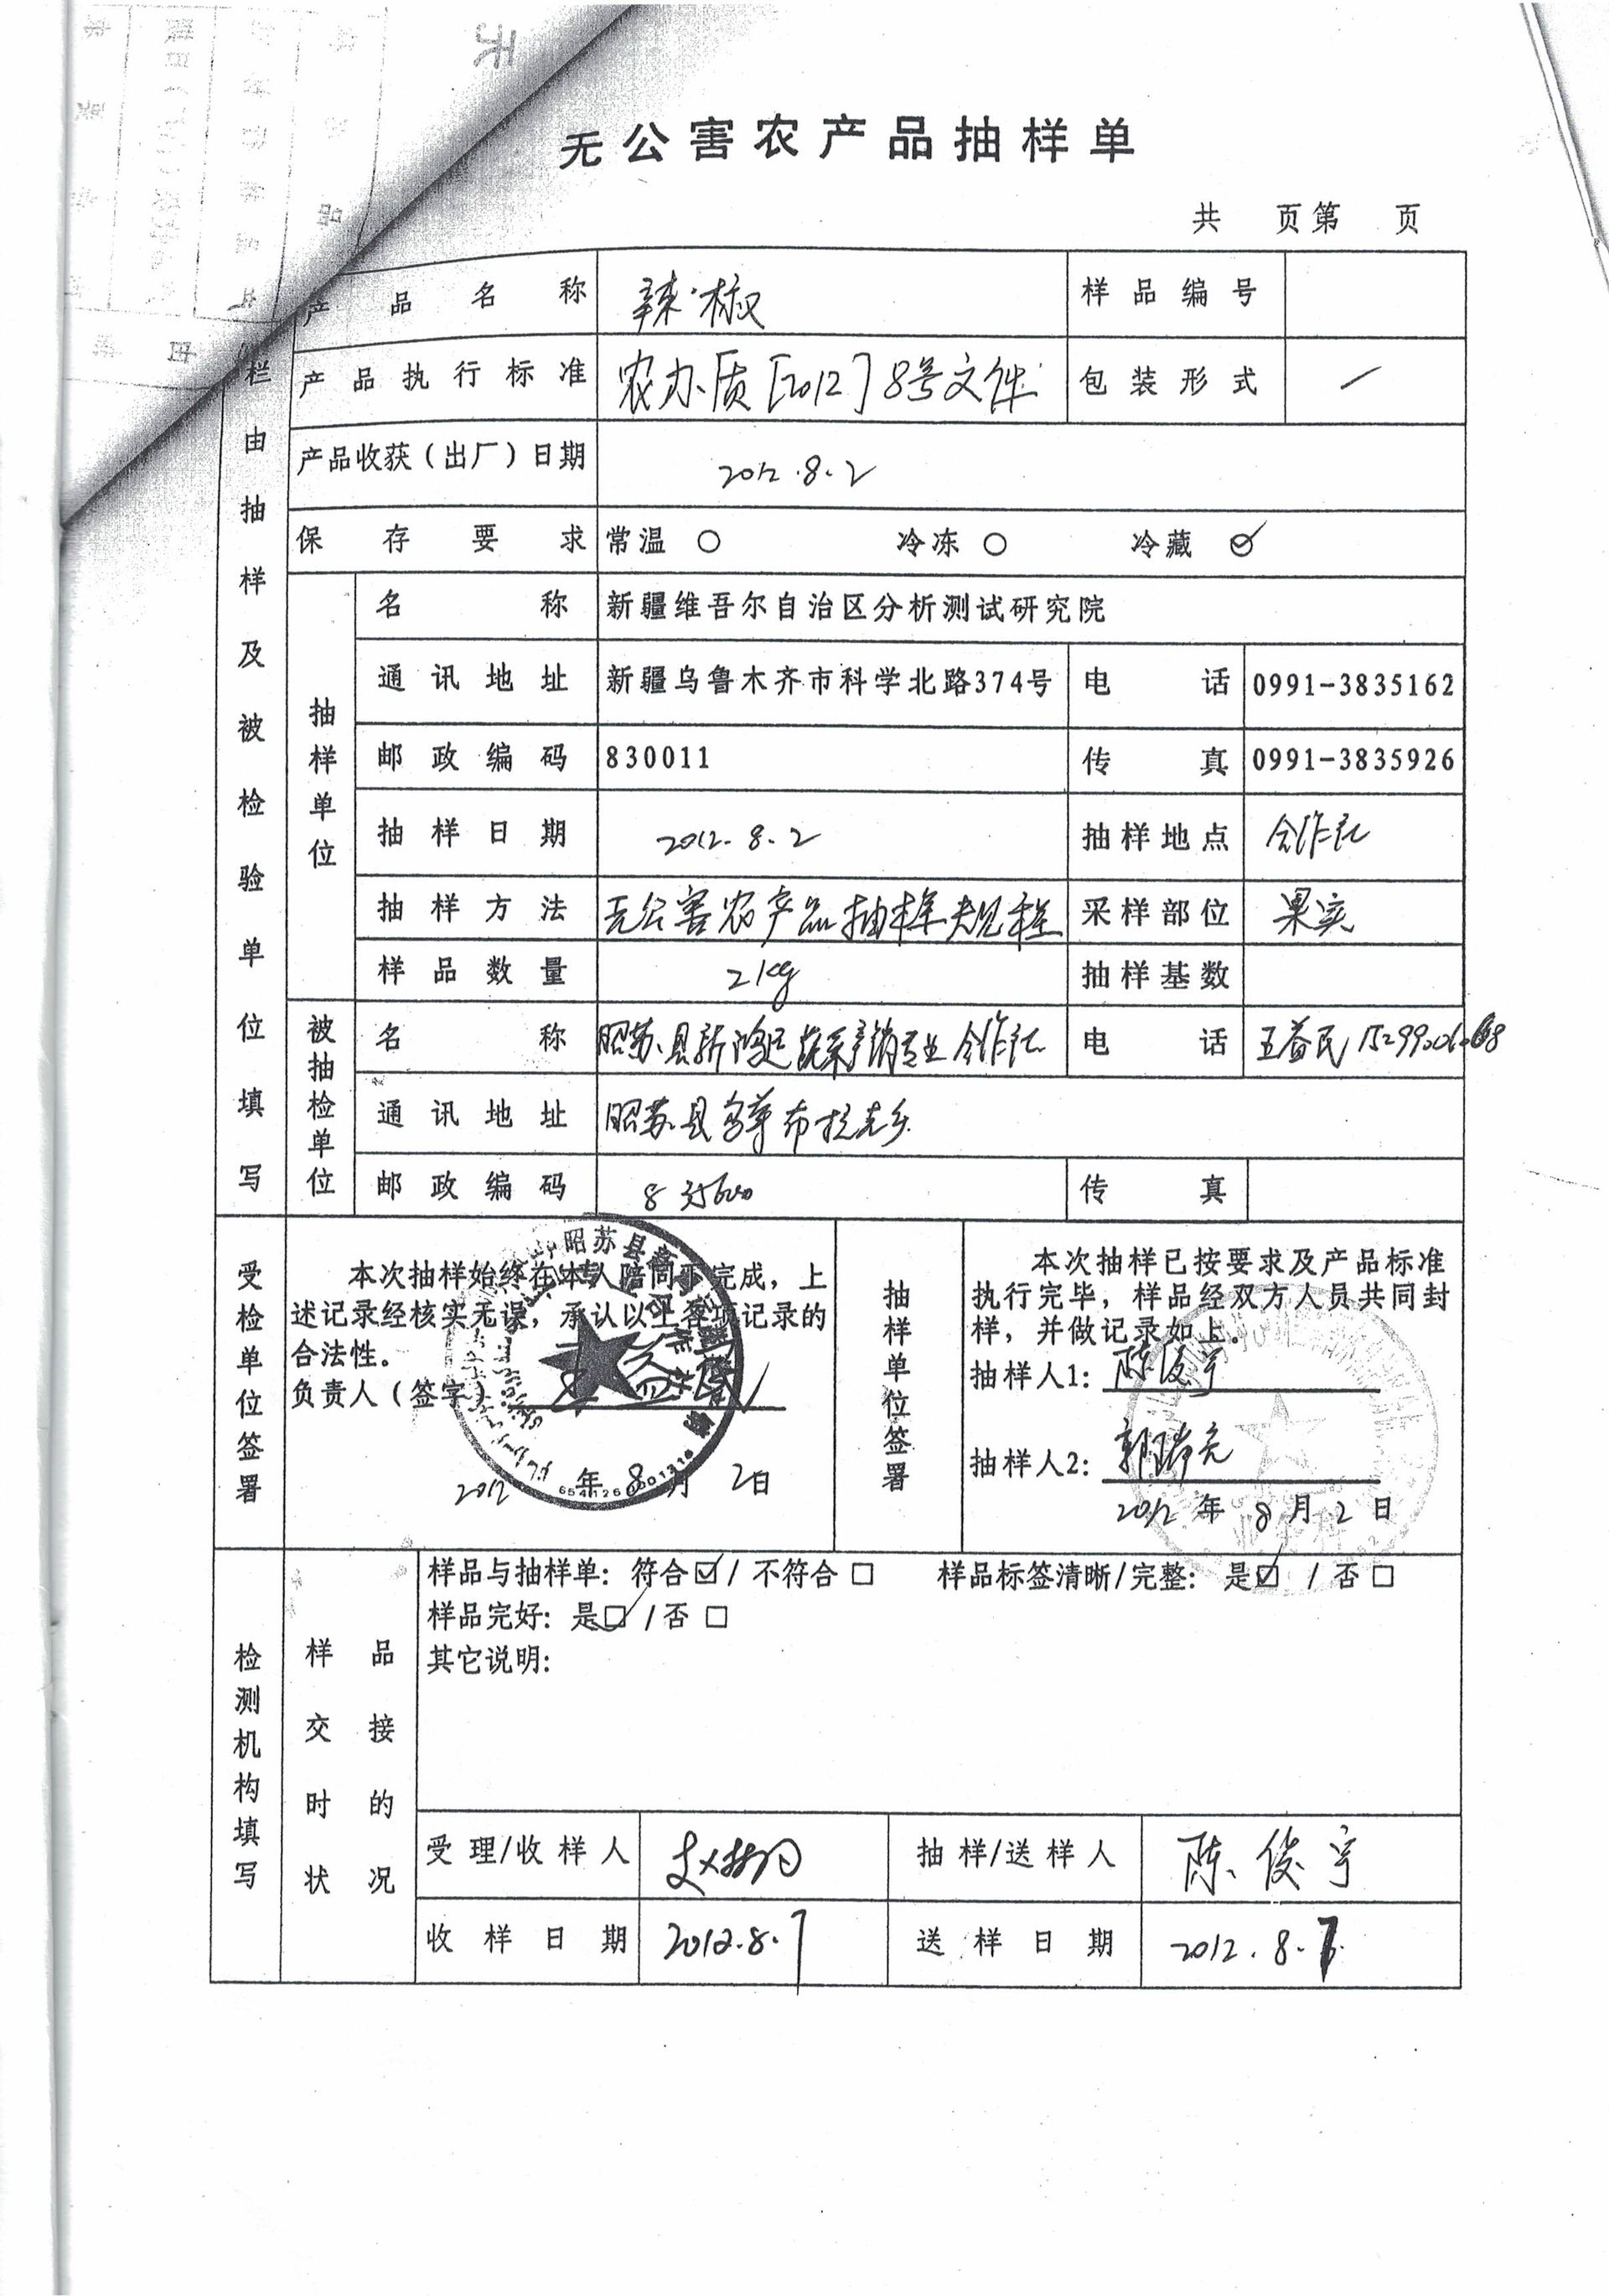 无公害农产品抽样单
共 页第 页
产品名称 辣椒 样品编号
产品执行标准 农办质[2012]8号文件 包装形式 /
产品收获(出厂)日期 2012.8.2
保存要求 常温 ○ 冷冻 ○ 冷藏 ☑
栏由抽样及被检验单位填写
抽样单位
名称 新疆维吾尔自治区分析测试研究院
通讯地址 新疆乌鲁木齐市科学北路374号 电话 0991-3835162
邮政编码 830011 传真 0991-3835926
抽样日期 2012.8.2 抽样地点 合作社
抽样方法 无公害农产品抽样规程 采样部位 果实
样品数量 2kg 抽样基数
被抽检单位
名称 昭苏县新鸿运蔬菜产销专业合作社 电话
通讯地址 昭苏县
邮政编码 835600 传真
受检单位签署
本次抽样始终在本人陪同下完成,上
述记录经核实无误,承认以上各项记录的
合法性。
负责人(签字)
2012年8月2日
抽样单位签署
本次抽样已按要求及产品标准
执行完毕,样品经双方人员共同封
样,并做记录如上。
抽样人1: 陈俊宇
抽样人2:
2012年8月2日
检测机构填写
样品交接时的状况
样品与抽样单: 符合☑/不符合□ 样品标签清晰/完整: 是☑/否□
样品完好: 是☑/否□
其它说明:
受理/收样人 抽样/送样人 陈俊宇
收样日期 2012.8.7 送样日期 2012.8.7